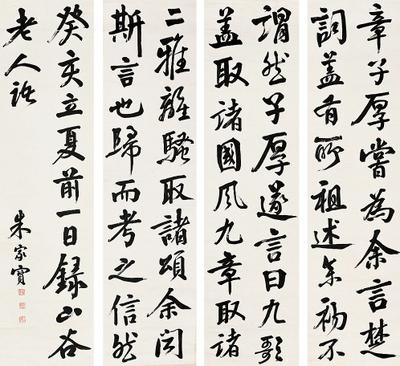 章子厚嘗為余言楚
詞蓋有所祖述余初不
謂然子厚遂言曰九歌
蓋取諸國風九章取諸
二雅離騷取諸頌余聞
斯言也歸而考之信然
癸亥立夏前一日録山谷
老人語
朱家寶